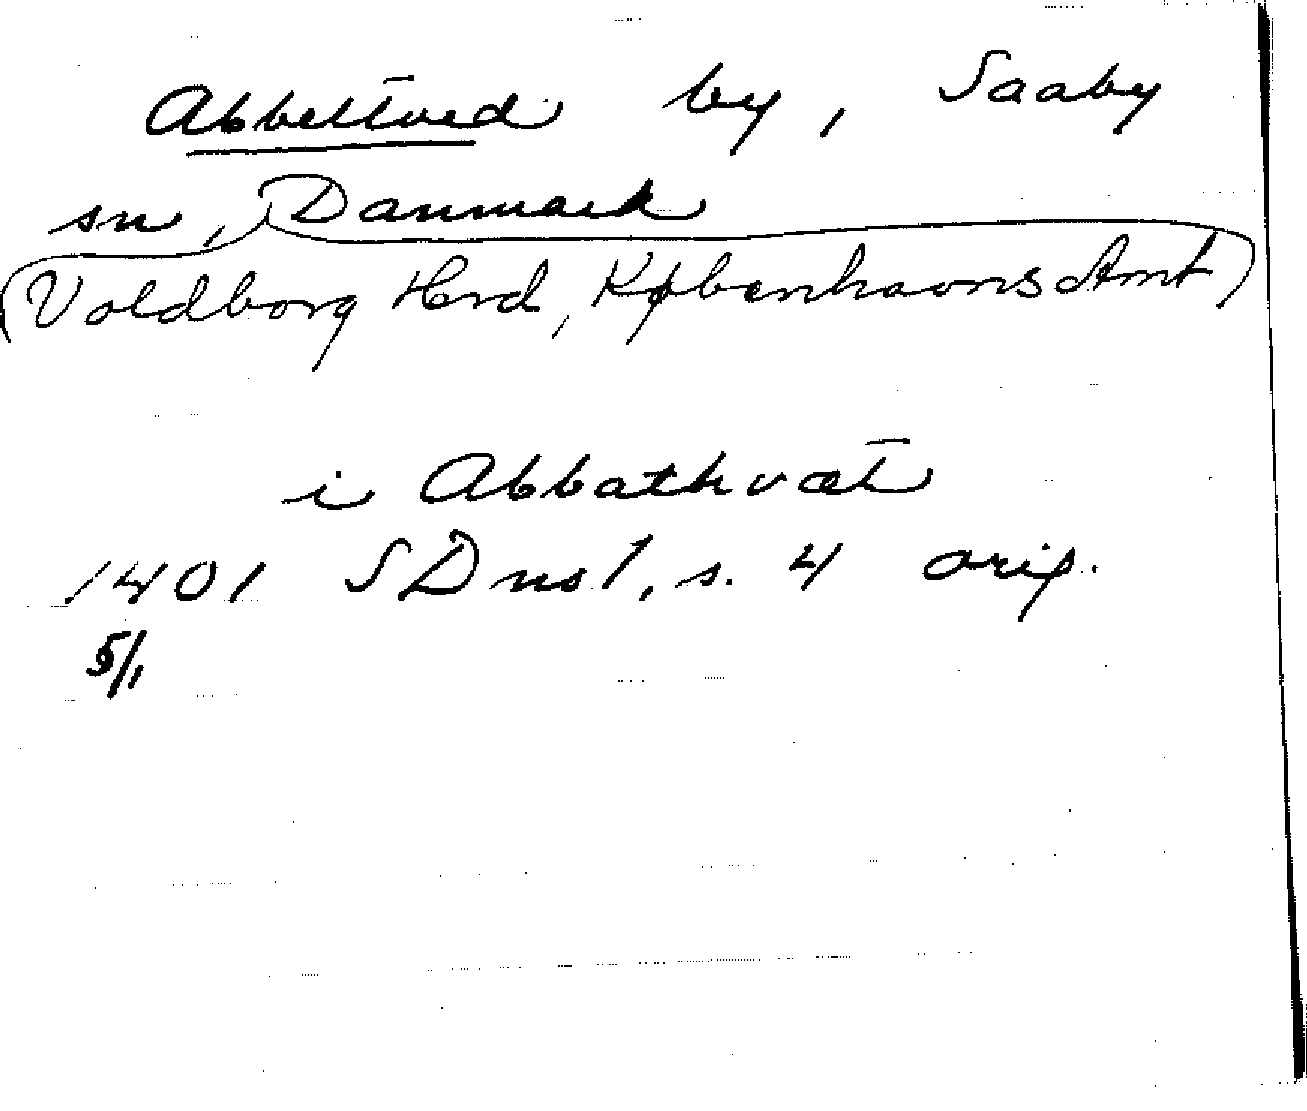 Abbeltved by, Saaby
sn, Danmark
(Voldborg Herd, Københavns Amt)
i Abbathvæt
1401 SDns 1, s. 4 orig.
5/1